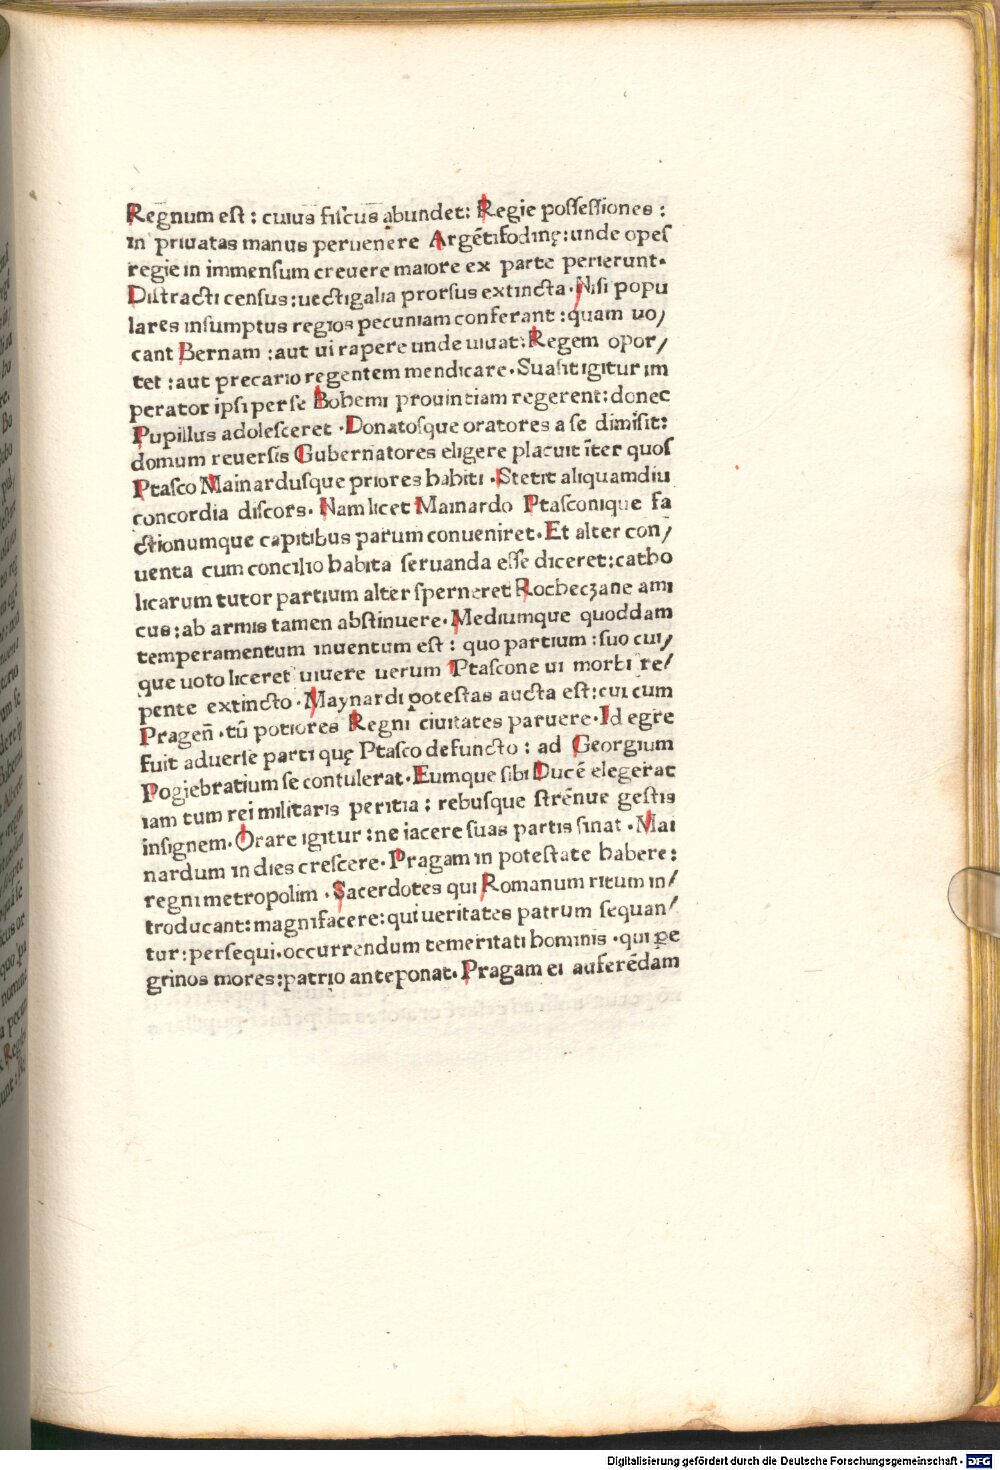 Regnum eſt : cuius fiſcus abundet: Regie poſſeſſiones :
in priuatas manus peruenere Argētifodinę:unde opeſ
regie in immenſum creuere maiore ex parte perierunt.
Diſtracti cenſus:uectigalia prorſus extincta.Niſi popu
lares inſumptus regios pecuniam conferant :quam uo/
cant Bernam :aut ui rapere unde uiuat:Regem opor/
tet :aut precario regentem mendicare.Suaſit igitur im
perator ipſi per ſe Bohemi prouintiam regerent:donec
Pupillus adoleſceret .Donatoſque oratores a ſe dimiſit:
domum reuerſis Gubernatores eligere placuit īter quoſ
Ptaſco Mainarduſque priores habiti .Stetit aliquamdiu
concordia diſcors. Nam licet Mainardo Ptaſconique fa
ctionumque capitibus parum conueniret.Et alter con/
uenta cum concilio habita ſeruanda eſſe diceret:catho
licarum tutor partium alter ſperneret Rocheczane ami
cus:ab armis tamen abſtinuere.Mediumque quoddam
temperamentum inuentum eſt : quo partium :ſuo cui/
que uoto liceret uiuere uerum Ptaſcone ui morbi re/
pente extincto .Maynardi poteſtas aucta eſt:cui cum
Pragen̄ .tū potiores Regni ciuitates paruere.Id egre
fuit aduerſe parti quę Ptaſco defuncto : ad Georgium
Pogiebratium ſe contulerat.Eumque ſibi Ducē elegerat
iam tum rei militaris peritia : rebuſque ſtrēnue geſtis
inſignem.Orare igitur :ne iacere ſuas partis ſinat .Mai
nardum in dies creſcere.Pragam in poteſtate habere:
regni metropolim .Sacerdotes qui Romanum ritum in/
troducant:magnifacere:qui ueritates patrum ſequan/
tur:perſequi.occurrendum temeritati hominis .qui ꝑe
grinos mores:patrio anteponat.Pragam ei auferēdam
Digitalisierung gefördert durch die Deutsche Forschungsgemeinschaft - DFG